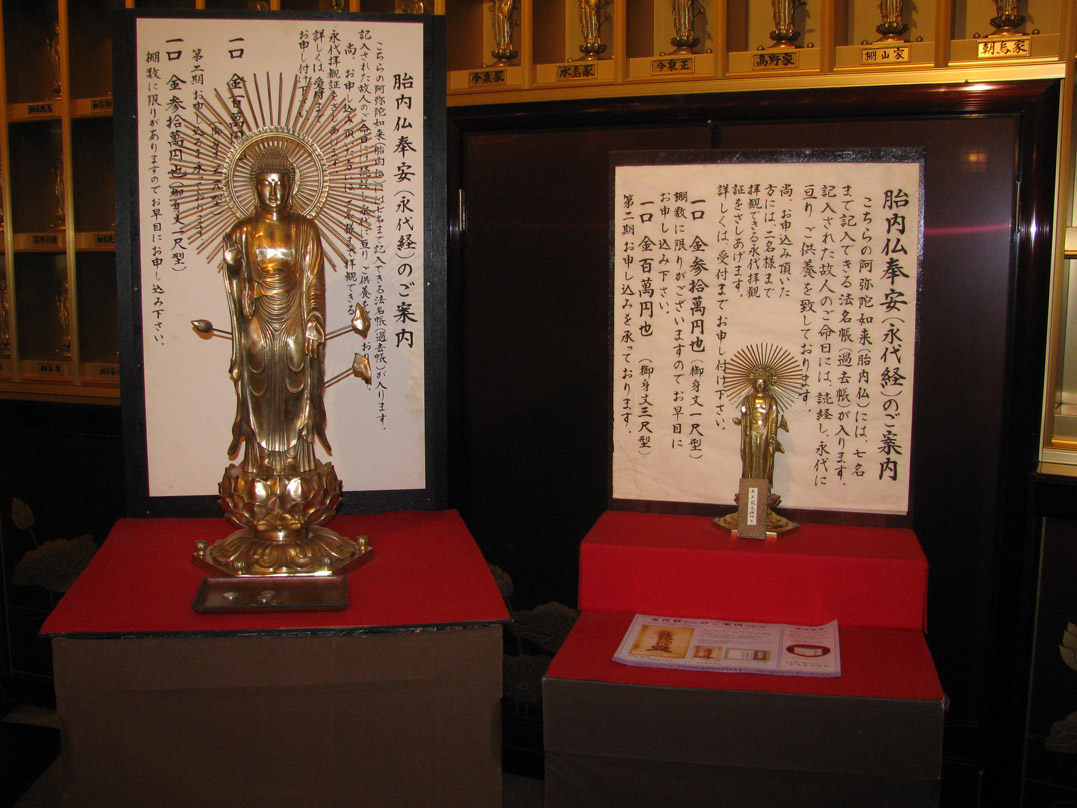 胎内仏奉安(永代経)のご案内
こちらの阿弥陀如来(胎内仏)には、七名
まで記入できる法名帳(過去帳)が入ります。
記入された故人のご命日には、読経し、永代に
亘り ご供養を致しております。
尚、お申込み頂いた
方には、二名様まで
拝観できる永代拝観
証をさしあげます。
詳しくは、受付までお申し付け下さい。
一口 金参拾萬円也(御身丈一尺型)
棚数に限りがございますのでお早目に
お申し込み下さい。
一口 金百萬円也(御身丈三尺型)
第二期お申し込みを承っております。
胎内仏奉安(永代経)のご案内
こちらの阿弥陀如来(胎内
名まで記入できる法名帳(過去帳)が入ります。
記入された故人のご命日には、読経
永代に亘りご供養を
おります。
尚、お申し込み頂いた方には
二名様まで拝観できる
永代拝観証をさしあ
詳しくは受付まで
お申し付け下さい
一口 金百萬円
第二期お申し込み
一口 金参拾萬円也(御身丈一尺型)
棚数に限りがありますのでお早目にお申し込み下さい。
今泉家
水鳥家
今東正
髙野家
棚山家
朝烏家
永代経
のご案内